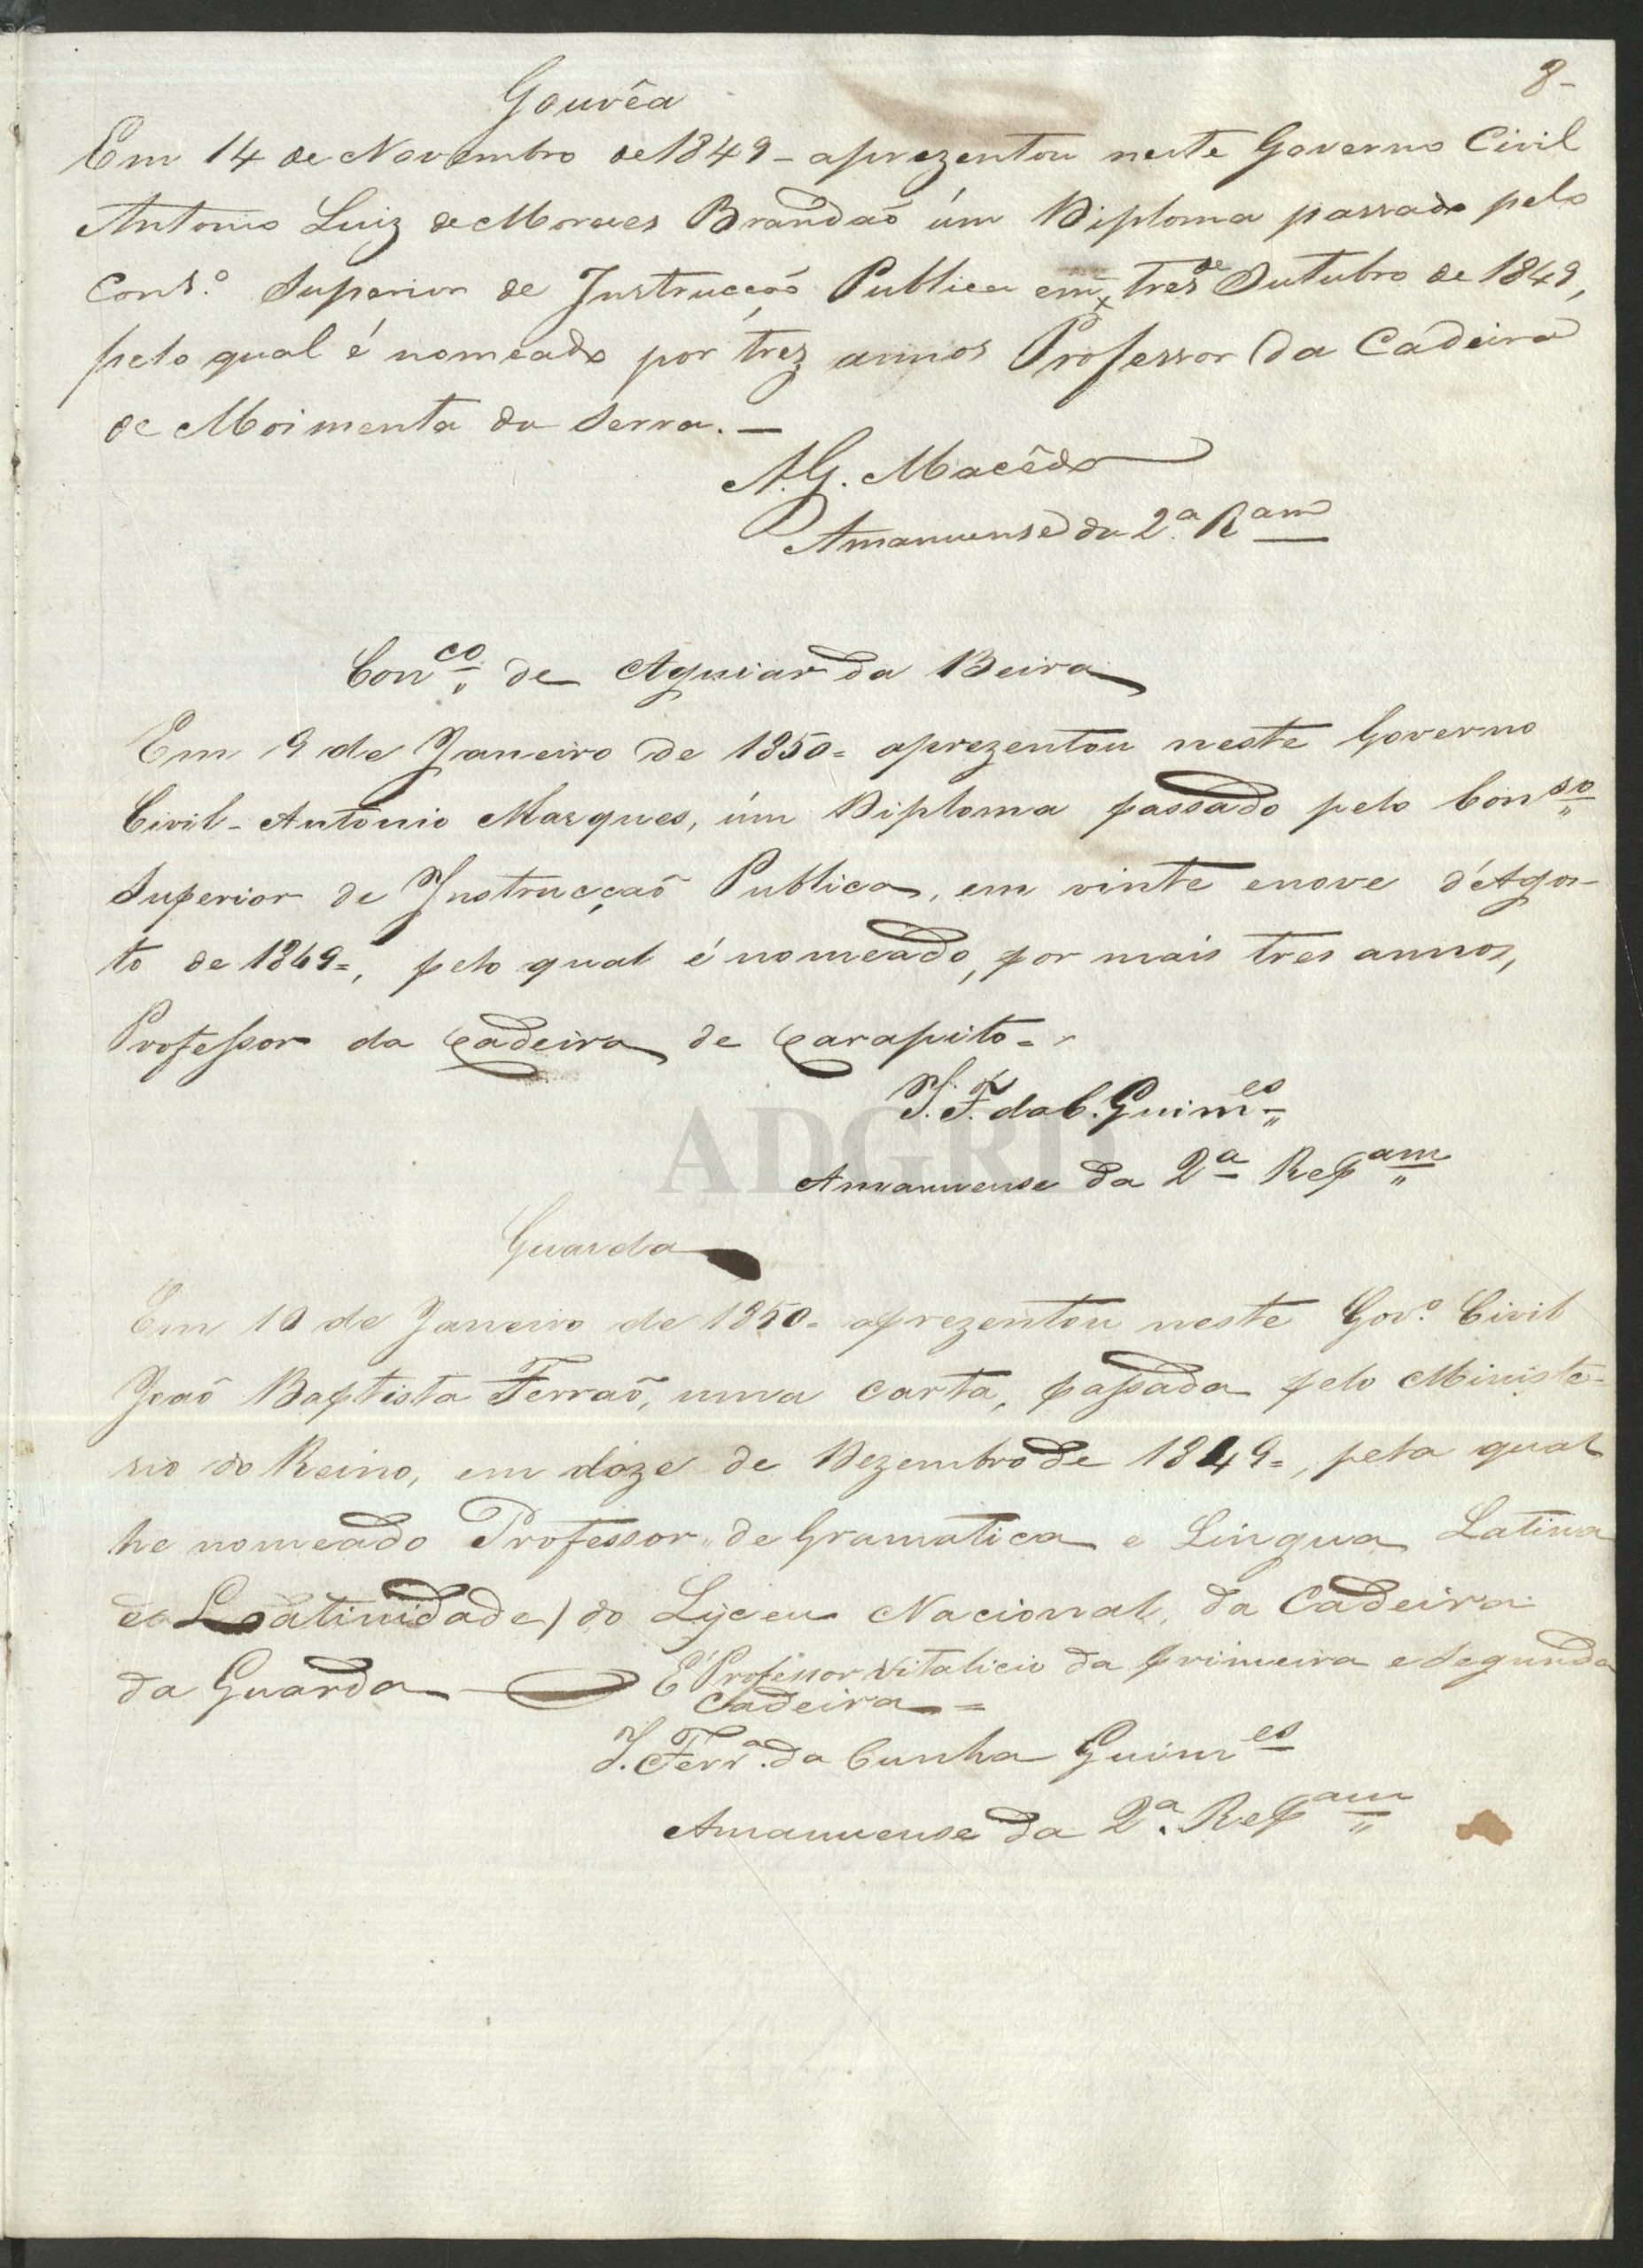 8-
Gouvêa
Em 14 de Novembro de 1849 - aprezentou neste Governo Civil
Antonio Luiz de Moraes Brandaõ úm Diploma passado pelo
Cons.º Superior de Instrucçaõ Publica em tres de Outubro de 1849,
pelo qual é nomeado por trez annos Professor da Cadeira
de Moimenta da Serra. —
A. G. Macêdo
Amanuense da 2.ª R.am
Con.co de Aguiar da Beira
Em 9 de Janeiro de 1850 = aprezentou neste Governo
Civil - Antonio Marques, úm Diploma passado pelo Conso
Superior de Instrucçaõ Publica, em vinte enove d'Agos-
to de 1849 =, pelo qual é nomeado, por mais tres annos,
Professor da Cadeira de Carapito =
J. F. da C. Guim.es
Amanuense da 2ª Rep.am
ADGRD
Guarda
Em 10 de Janeiro de 1850 = aprezentou neste Gov.º Civil
Joaõ Baptista Ferraõ, uma carta, passada pelo Ministe-
rio do Reino, em doze de Dezembro de 1849 =, pela qual
he nomeado Professor de Gramatica e Lingua Latina
e Latinidade) do Lyceu Nacional, da Cadeira
da Guarda — É Professor Vitalicio da primeira e segunda
Cadeira =
J. Ferr.ª da Cunha Guim.es
Amanuense da 2.ª Rep.am